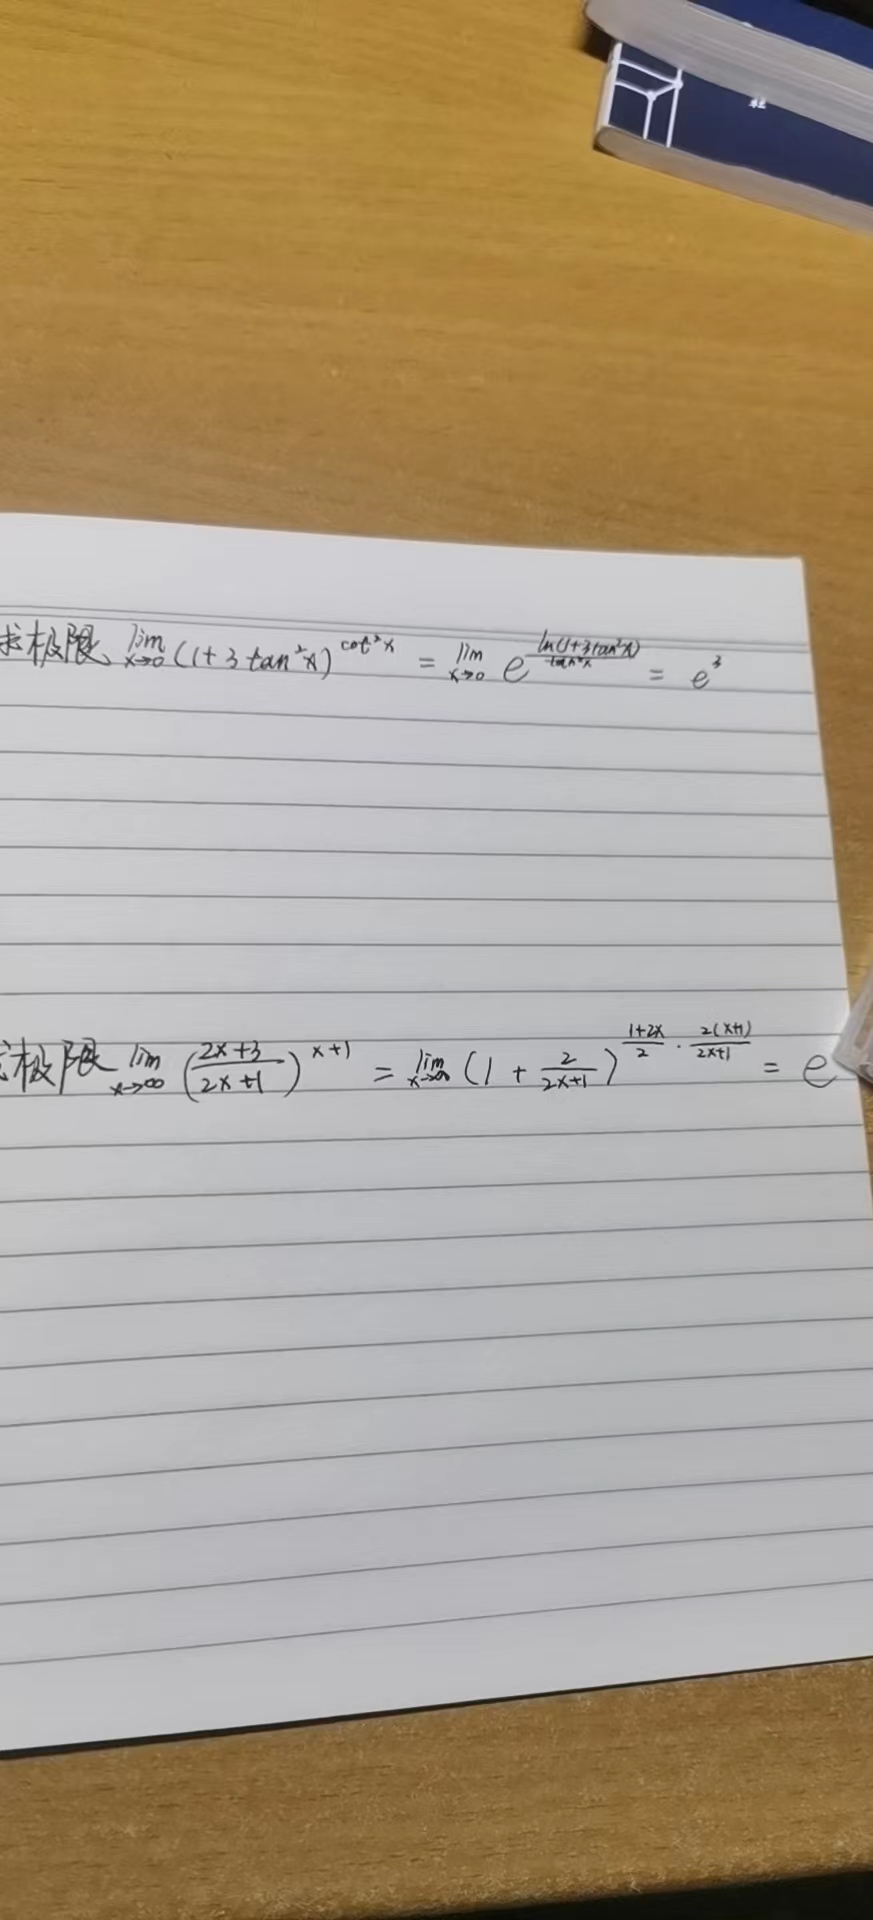 求极限 lim x→0 (1+3tan²x)^cot²x = lim x→0 e^(ln(1+3tan²x)/tan²x) = e³
极限 lim x→∞ ((2x+3)/(2x+1))^(x+1) = lim x→∞ (1 + 2/(2x+1))^((1+2x)/2 · 2(x+1)/(2x+1)) = e